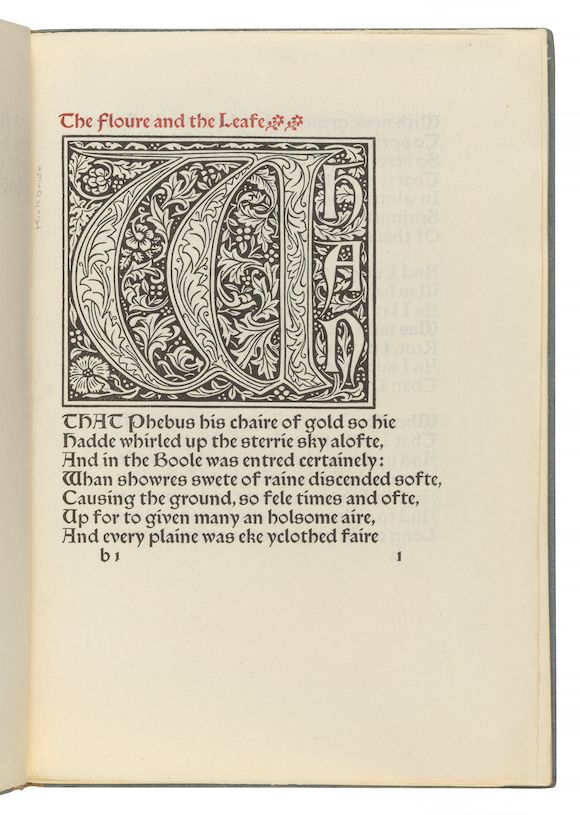 The Floure and the Leafe
WhAN
THAT Phebus his chaire of gold so hie
Hadde whirled up the sterrie sky alofte,
And in the Boole was entred certainely:
Whan showres swete of raine discended softe,
Causing the ground, so fele times and ofte,
Up for to given many an holsome aire,
And every plaine was eke yclothed faire
b1 1